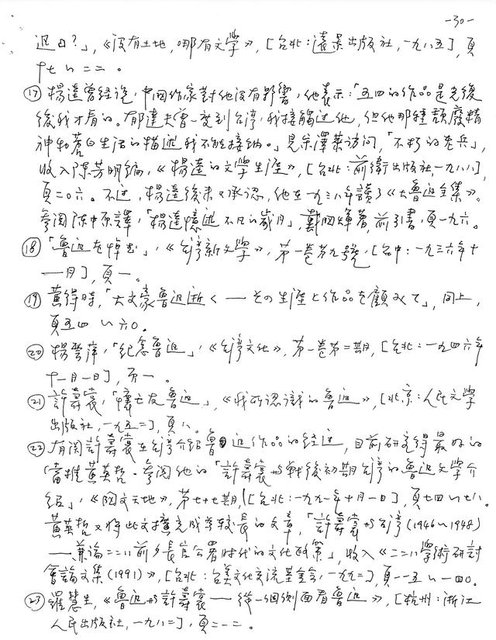 -30-
迅日?」,《沒有土地,哪有文學》,[台北:遠景出版社,一九八五],頁
十七~二二。
⑰楊逵曾經說,中國作家對他沒有影響,他表示:「五四的作品是光復
後我才看的。郁達夫曾一度到台灣,我接觸過他,但他那種頹廢精
神和蒼白生活的描述我不能接納。」見宋澤萊訪問,「不朽的老兵」,
收入陳芳明編,《楊逵的文學生涯》,[台北:前衛出版社一九八八],
頁二〇六。不過,楊逵後來又承認,他在一九三八年讀《大魯迅全集》。
參閱陳中原譯,「楊逵憶述不凡的歲月」,戴國煇著前引書,頁一九六。
⑱「魯迅を悼む」,《台灣新文學》,第一卷第九號,[台中:一九三六年十
一月],頁一。
⑲黃得時,「大文豪魯迅逝く——その生涯と作品を顧みて」,同上,
頁五四~六〇。
⑳楊雲萍,「紀念魯迅」,《台灣文化》,第一卷第二期,[台北:一九四六年
十一月一日],頁一。
㉑許壽裳,「懷亡友魯迅」,《我所認識的魯迅》,[北京:人民文學
出版社,一九五二],頁八。
㉒有關許壽裳在台灣介紹魯迅作品的經過,目前研究得最好的
當推黃英哲。參閱他的「許壽裳與戰後初期台灣的魯迅文學介
紹」,《國文天地》,第七十七期[台北:一九九一年十月一日],頁七四~七八。
黃英哲又將此文擴充成等較長的文章,「許壽裳與台灣(1946~1948)
——兼論二二八前夕長官公署時代的文化政策」,收入《二二八學術研討
會論文集(1991)》,[台北:台美文化交流基金會,一九九二],頁一一五~一四〇。
㉓羅慧生,《魯迅與許壽裳——從一個側面看魯迅》,[杭州:浙江
人民出版社,一九八二],頁二一二。